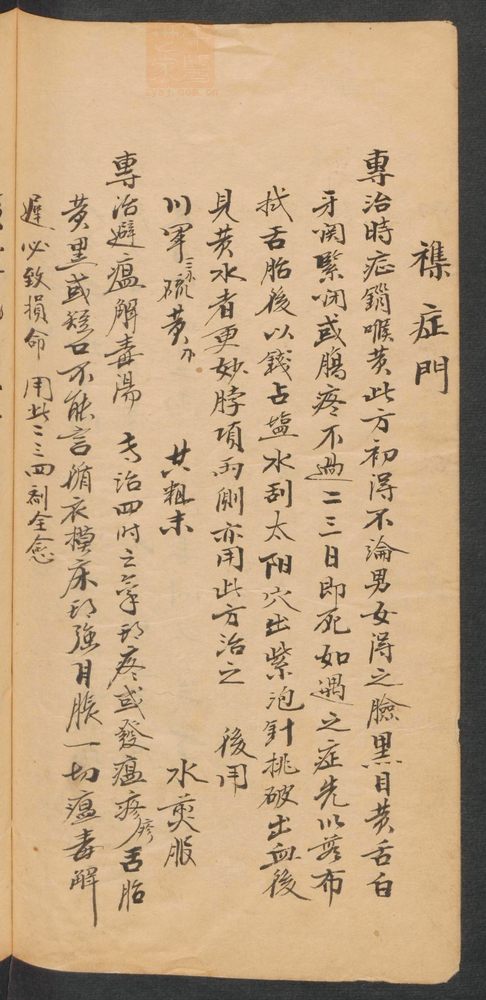 襍症門
專治時症鎖喉黄此方初得不論男女得之臉黑目黄舌白
牙関緊闭或腸疼不過二三日即死如遇之症先以蓝布
拭舌胎後以錢占塩水刮太阳穴出紫泡針挑破出血後
見黄水者更妙脖項両側亦用此方治之 後用
川軍三 硫黄 共粗末 水煎服
專治避瘟解毒湯 专治四时之氣 疼或發瘟疹 舌胎
黄黑或 口不能言循衣摸床 强目脹一切瘟毒解
遲必致損命 用此二三四剂全愈